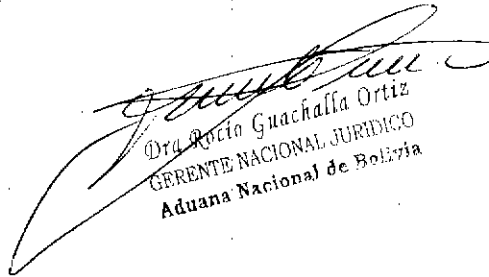 Dra Rocío Guachalla Ortiz
GERENTE NACIONAL JURIDICO
Aduana Nacional de Bolivia